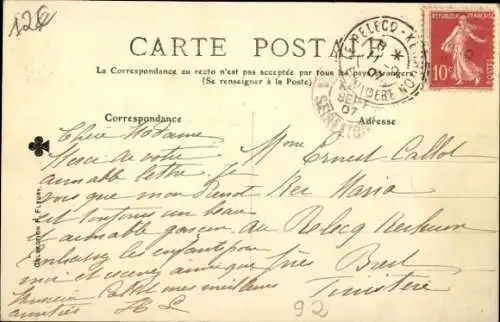 12€
CARTE POSTALE
La Correspondance au recto n'est pas acceptée par tous les pays étrangers
(Se renseigner à la Poste)
REPUBLIQUE FRANÇAISE
10c
POSTES
LE RELECQ-KERHUON
FINISTERE
SEPT
07
Correspondance
Adresse
Chère Madame
Merci de votre
aimable lettre. Je
vois que mon
est toujours un beau
et aimable garçon.
Embrassez les enfants pour
moi et ainsi que
mes meilleures
amitiés
Mme Ernest Callot
Ker Maria
au Relecq Kerhuon
près Brest
Finistère
92
COLLECTION F. FLEURY